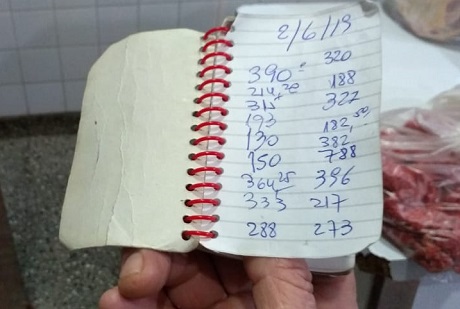 2/6/19
320
390 188
214,20 322
315 182,50
193 382
130 788
150 396
364,25 217
333 273
288